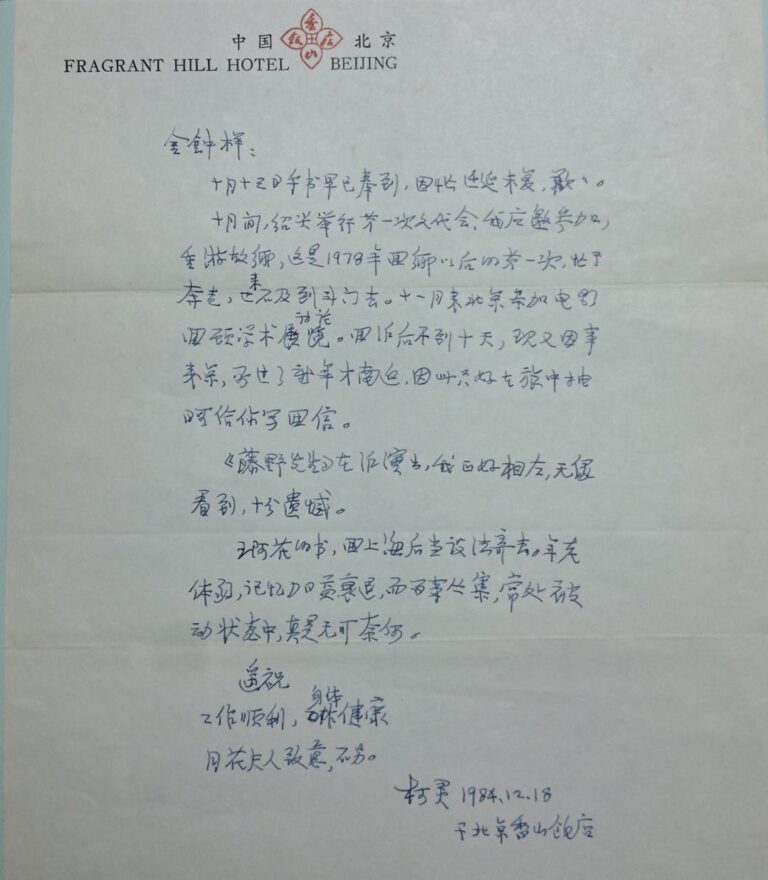 中国 香山饭店 北京
FRAGRANT HILL HOTEL BEIJING
金钟祥：
十月十三日手书早已奉到，因忙迟迟未复，歉歉。
十月间，绍兴举行第一次文代会，我应邀参加，
重游故乡，这是1978年回乡以后的第一次，忙于
奔走，也来不及到斗门去。十一月来北京参加电影
回顾学术讨论。回沪后不到十天，现又因事
来京，要过了新年才南返，因此只好在旅中抽
时给你写回信。
《藤野先生》在沪演出，我正好相左，无缘
看到，十分遗憾。
回上海后当设法寄去。年老
体弱，记忆力日益衰退，而百事丛集，常处被
动状态中，真是无可奈何。
遥祝
工作顺利，身体健康
月花夫人致意，不另。
柯灵 1984.12.18
于北京香山饭店